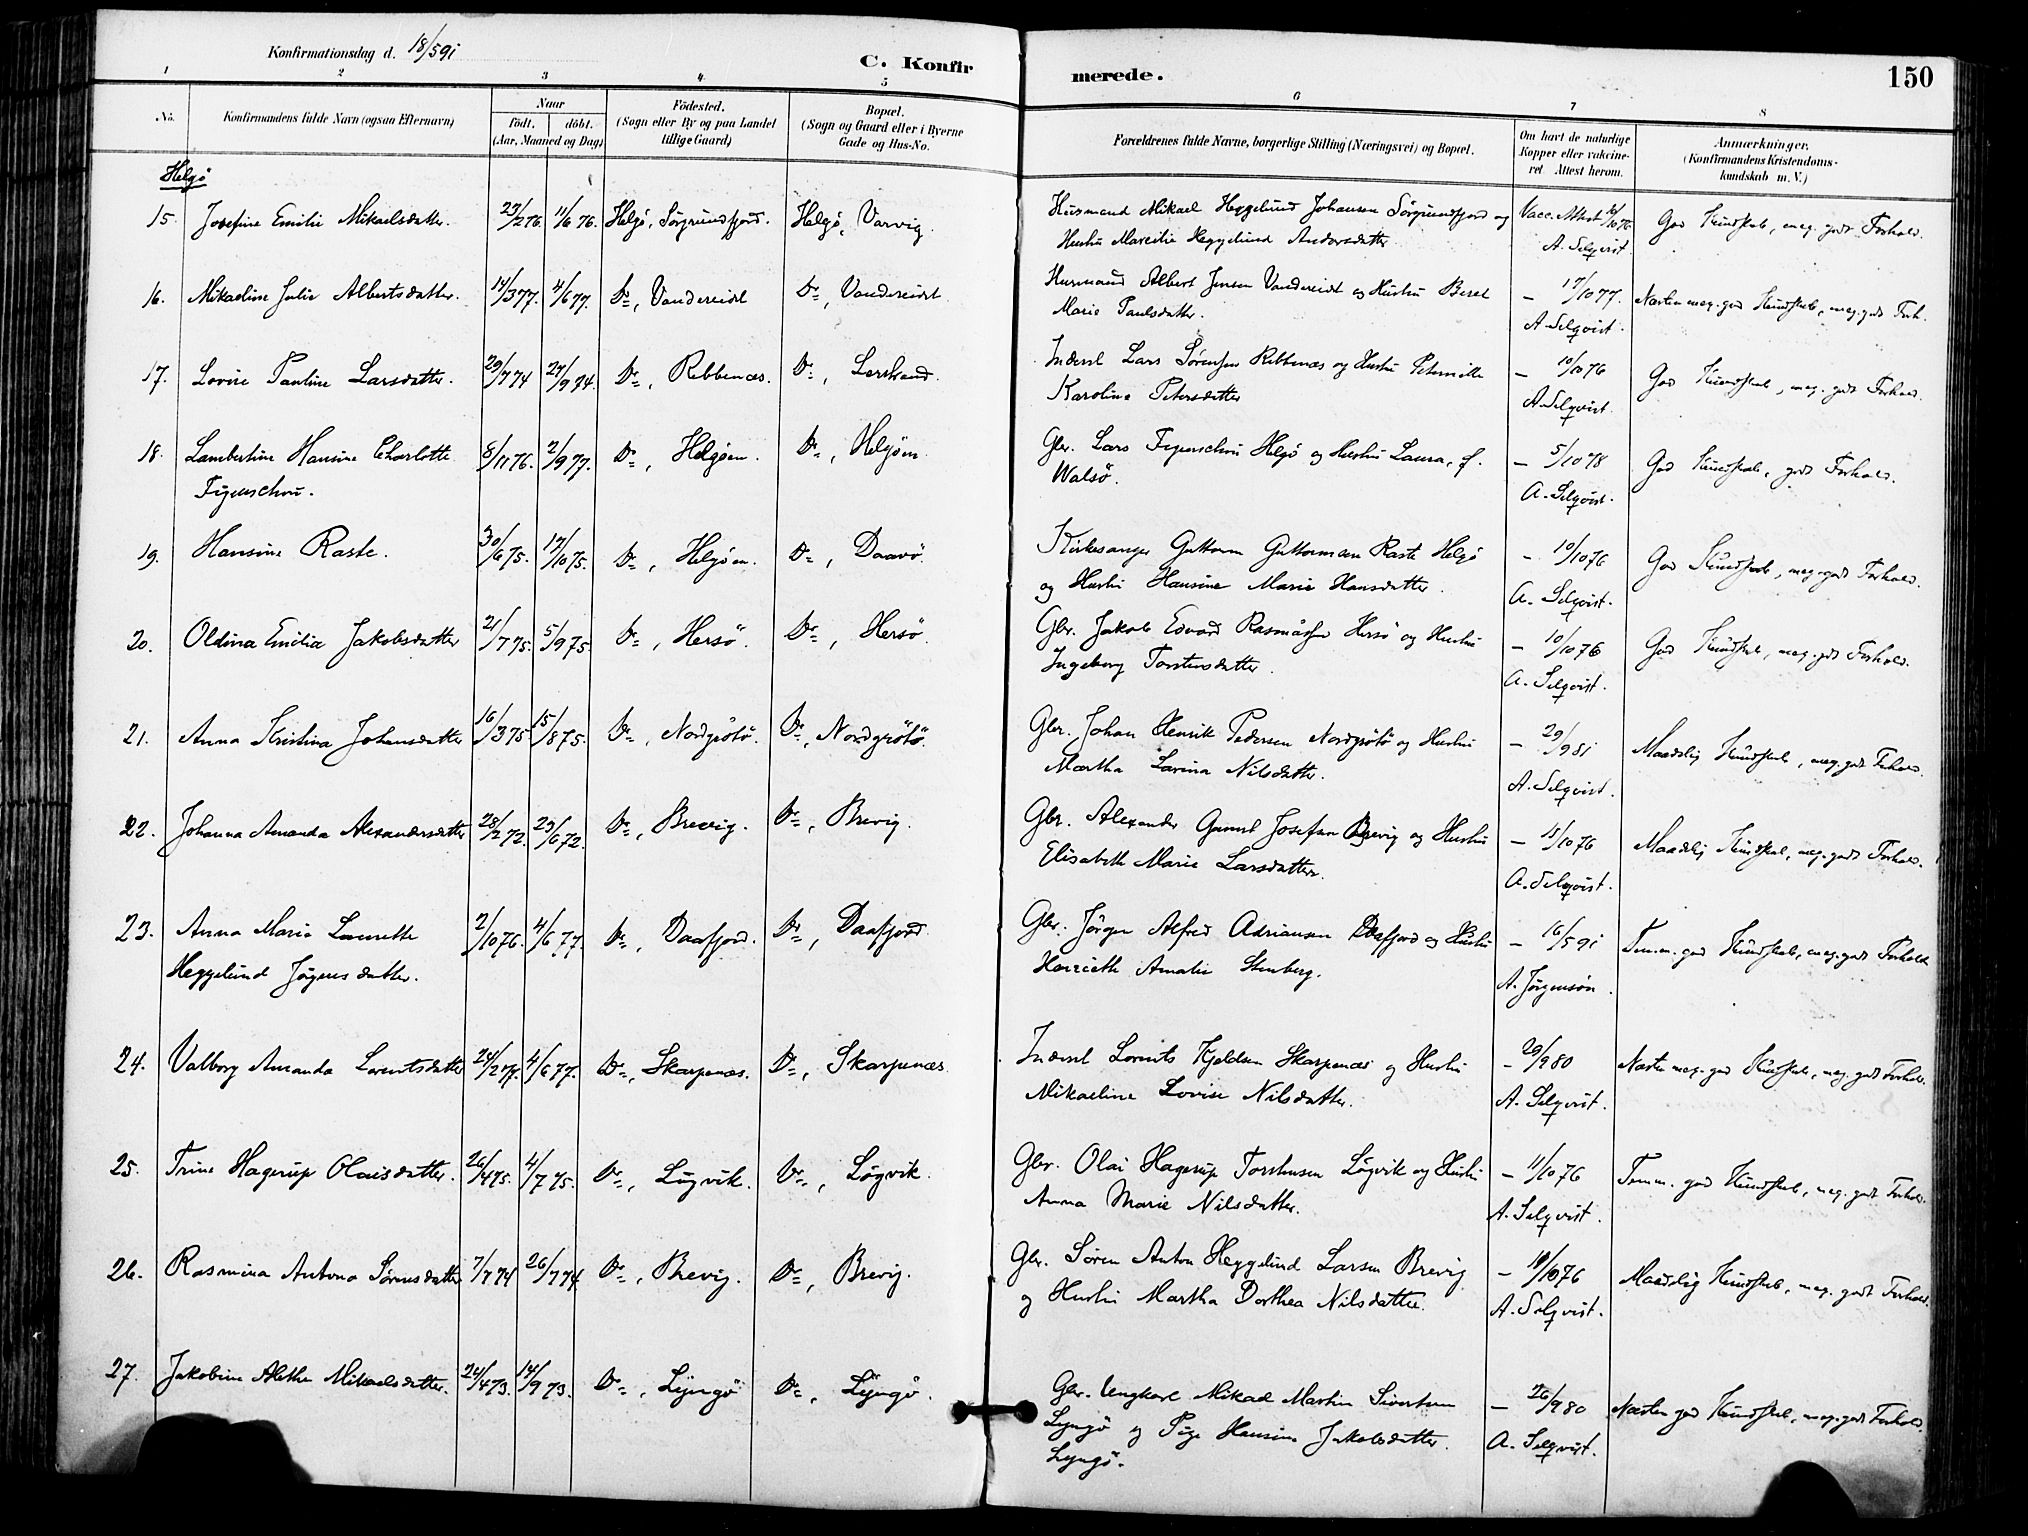 Konfirmationsdag d. 18/5 91
C. Konfirmerede.
150
1 2 3 4 5 6 7 8
No.
Konfirmandens fulde Navn (ogsaa Efternavn)
Naar
födt. döbt.
(Aar, Maaned og Dag)
Födested.
(Sogn eller By og paa Landet
tillige Gaard)
Bopæl.
(Sogn og Gaard eller i Byerne
Gade og Hus-No.
Forældrenes fulde Navne, borgerlige Stilling (Næringsvei) og Bopæl.
Om havt de naturlige
Kopper eller vakcine-
ret. Attest herom.
Anmærkninger.
(Konfirmandens Kristendoms-
kundskab m. V.)
Helgö
15. Josefine Emilie Mikaelsdatter. 27/2 76. 11/6 76. Helgö, Sörgrundfjord. Helgö, Varvig. Husmand Mikael Heggelund Johansen Sörgrundfjord og Vacc. Attest 10/10 76 God Kundskab, meg. godt Forhold.
Hustru Marcilie Heggelund Andersdatter A. Selqvist.
16. Mikaeline Julie Albertsdatter. 14/3 77. 4/6 77. Do, Vandereidet Do, Vandereidet Husmand Albert Jensen Vandereidet og Hustru Beret – 17/10 77. Næsten meg. god Kundskab, meg. godt Forh.
Marie Paulsdatter. A. Selqvist.
17. Lovise Pauline Larsdatter. 29/7 74 27/9 74. Do, Rebbenæs. Do, Lerstrand. Inderst Lars Sörensen Rebbenæs og Hustru Peternille – 10/10 76 God Kundskab, meg. godt Forhold.
Karoline Petersdatter A. Selqvist.
18. Lambertine Hansine Charlotte 8/11 76. 2/9 77. Do, Helgöen. Do, Helgöen Gbr. Lars Figenschou Helgö og Hustru Laura, f. – 5/10 78 God Kundskab, godt Forhold.
Figenschou. Walsö. A. Selqvist.
19. Hansine Raste. 30/6 75. 17/10 75. Do, Helgöen. Do, Daavö. Kirkesanger Guttorm Guttormsen Raste Helgö – 10/10 76 God Kundskab, meg. godt Forhold.
og Hustru Hansine Marie Hansdatter. A. Selqvist.
20. Oldina Emilia Jakobsdatter 21/7 75. 5/9 75. Do, Hersö. Do, Hersö. Gbr. Jakob Edvard Rasmussen Hersö og Hustru – 10/10 76 God Kundskab, meg. godt Forhold.
Ingeborg Torstensdatter. A. Selqvist.
21. Anna Kristina Johansdatter 16/3 75 15/8 75. Do, Nordgrötö. Do, Nordgrötö. Gbr. Johan Henrik Pedersen Nordgrötö og Hustru – 29/9 81 Maadelig Kundskab, meg. godt Forhold.
Martha Larina Nilsdatter. A. Selqvist.
22. Johanna Amanda Alexandersdatter 28/2 72. 23/6 72. Do, Brevig. Do, Brevig. Gbr. Alexander Josefsen Brevig og Hustru – 11/10 76 Maadelig Kundskab, meg. godt Forhold.
Elisabeth Marie Larsdatter. A. Selqvist.
23. Anna Maria Laurette 2/10 76. 4/6 77. Do, Daafjord. Do, Daafjord. Gbr. Jörgen Alfred Adriansen Daafjord og Hustru – 16/5 91 Temm. god Kundskab, meg. godt Forhold
Heggelund Jörgensdatter. Henriette Amalie Stenberg. A. Jörgensön.
24. Valborg Amanda Lorentsdatter 24/2 77. 4/6 77. Do, Skarpenæs. Do, Skarpenæs. Inderst Lorents Kjeldsen Skarpenæs og Hustru – 29/9 80 Næsten meg. god Kundskab, meg. godt Forhold.
Mikaeline Lovise Nilsdatter. A. Selqvist.
25. Trine Hagerup Olaisdatter. 26/4 75. 4/7 75. Do, Lögvik. Do, Lögvik. Gbr. Olai Hagerup Torstensen Lögvik og Hustru – 11/10 76 Temm. god Kundskab, meg. godt Forhold.
Anna Marie Nilsdatter. A. Selqvist.
26. Rasmina Antona Sörensdatter 7/7 74 26/7 74. Do, Brevig. Do, Brevig. Gbr. Sören Anton Heggelund Larsen Brevig – 10/10 76 Maadelig Kundskab, meg. godt Forhold.
og Hustru Martha Dorthea Nilsdatter. A. Selqvist.
27. Jakobine Alethe Mikaelsdatter. 24/4 73. 14/9 73. Do, Lyngö Do, Lyngö. Gbr. Ungkarl Mikael Martin Sivertsen – 26/9 80 Næsten god Kundskab, meg. godt Forhold.
Lyngö og Pige Hansine Jakobsdatter A. Selqvist.
Lyngö.